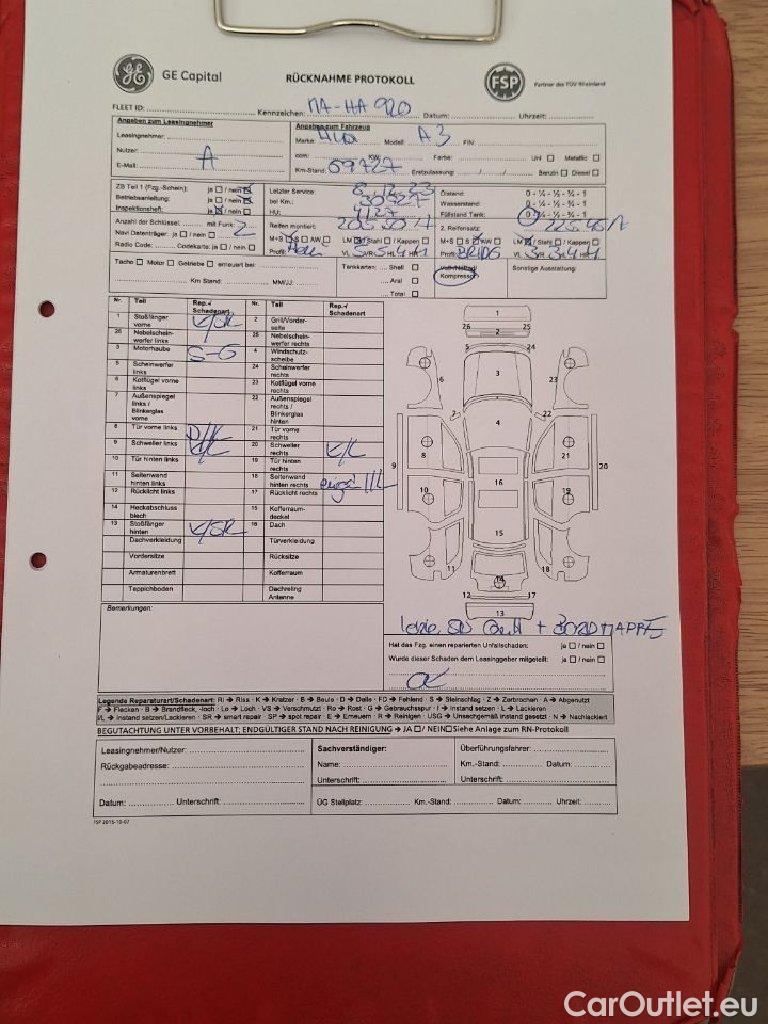 GE Capital RÜCKNAHME PROTOKOLL FSP Partner des TÜV Rheinland
FLEET ID: Kennzeichen: MA-HA 920 Datum: Uhrzeit:
Angaben zum Leasingnehmer Angaben zum Fahrzeug
Leasingnehmer: Marke: Modell: A3 FIN:
Nutzer: A KW: Farbe: Uni Metallic
E-Mail: Km-Stand: 69727 Erstzulassung: Benzin Diesel
ZB Teil 1 (Fzg.-Schein): ja / nein Letzter Service: 8.12.23 Ölstand: 0 - ¼ - ½ - ¾ - 1
Betriebsanleitung: ja / nein bei Km.: Wasserstand: 0 - ¼ - ½ - ¾ - 1
Inspektionsheft: ja / nein HU: Füllstand Tank: 0 - ¼ - ½ - ¾ - 1
Anzahl der Schlüssel: mit Funk: 2 Reifen montiert: 2. Reifensatz:
Navi Datenträger: ja / nein M+S S AW LM / Stahl / Kappen M+S S AW LM / Stahl / Kappen
Radio Code: Codekarte: ja / nein Profil: VL VR HL HR Profil: VL VR HL HR
Tacho Motor Getriebe erneuert bei: Tankkarten: Shell Kompressor Sonstige Ausstattung:
Aral
Km Stand: MM/JJ: Total
Nr. Teil Rep.-/ Schadenart Nr. Teil Rep.-/ Schadenart
1 Stoßfänger vorne K/SR 2 Grill/Vorderseite
26 Nebelscheinwerfer links 25 Nebelscheinwerfer rechts
3 Motorhaube S-G 4 Windschutzscheibe
5 Scheinwerfer links 24 Scheinwerfer rechts
6 Kotflügel vorne links 23 Kotflügel vorne rechts
7 Außenspiegel links / Blinkerglas vorne 22 Außenspiegel rechts / Blinkerglas hinten
8 Tür vorne links 21 Tür vorne rechts
9 Schweller links 20 Schweller rechts K/L
10 Tür hinten links 19 Tür hinten rechts
11 Seitenwand hinten links 18 Seitenwand hinten rechts
12 Rücklicht links 17 Rücklicht rechts
14 Heckabschluss blech 15 Kofferraumdeckel
13 Stoßfänger hinten K/SR 16 Dach
Dachverkleidung Türverkleidung
Vordersitze Rücksitze
Armaturenbrett Kofferraum
Teppichboden Dachreling Antenne
1
26 2 25
5 24
6 3 23
7 22
4
9 8 21 20
10 16 19
15
11 14 18
12 17
13
Bemerkungen: + BORDMAPPE
Hat das Fzg. einen reparierten Unfallschaden: ja / nein
Wurde dieser Schaden dem Leasinggeber mitgeteilt: ja / nein
Legende Reparaturart/Schadenart: RI → Riss · K → Kratzer · B → Beule · D → Delle · FD → Fehlend · S → Steinschlag · Z → Zerbrochen · A → Abgenutzt
F → Flecken · B → Brandfleck, -loch · Lo → Loch · VS → Verschmutzt · Ro → Rost · G → Gebrauchsspur · I → Instand setzen · L → Lackieren
I/L → Instand setzen/Lackieren · SR → smart repair · SP → spot repair · E → Erneuern · R → Reinigen · USG → Unsachgemäß instand gesetzt · N → Nachlackiert
BEGUTACHTUNG UNTER VORBEHALT; ENDGÜLTIGER STAND NACH REINIGUNG → JA / NEIN Siehe Anlage zum RN-Protokoll
Leasingnehmer/Nutzer: Sachverständiger: Überführungsfahrer:
Rückgabeadresse: Name: Km.-Stand: Datum:
Unterschrift: Unterschrift:
Datum: Unterschrift: ÜG Stellplatz: Km.-Stand: Datum: Uhrzeit:
FSP 2015-10-07
CarOutlet.eu